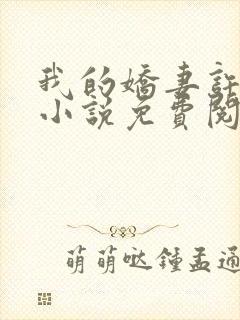 我的嬌妻許
小說免費閱
萌萌哒鍾孟通